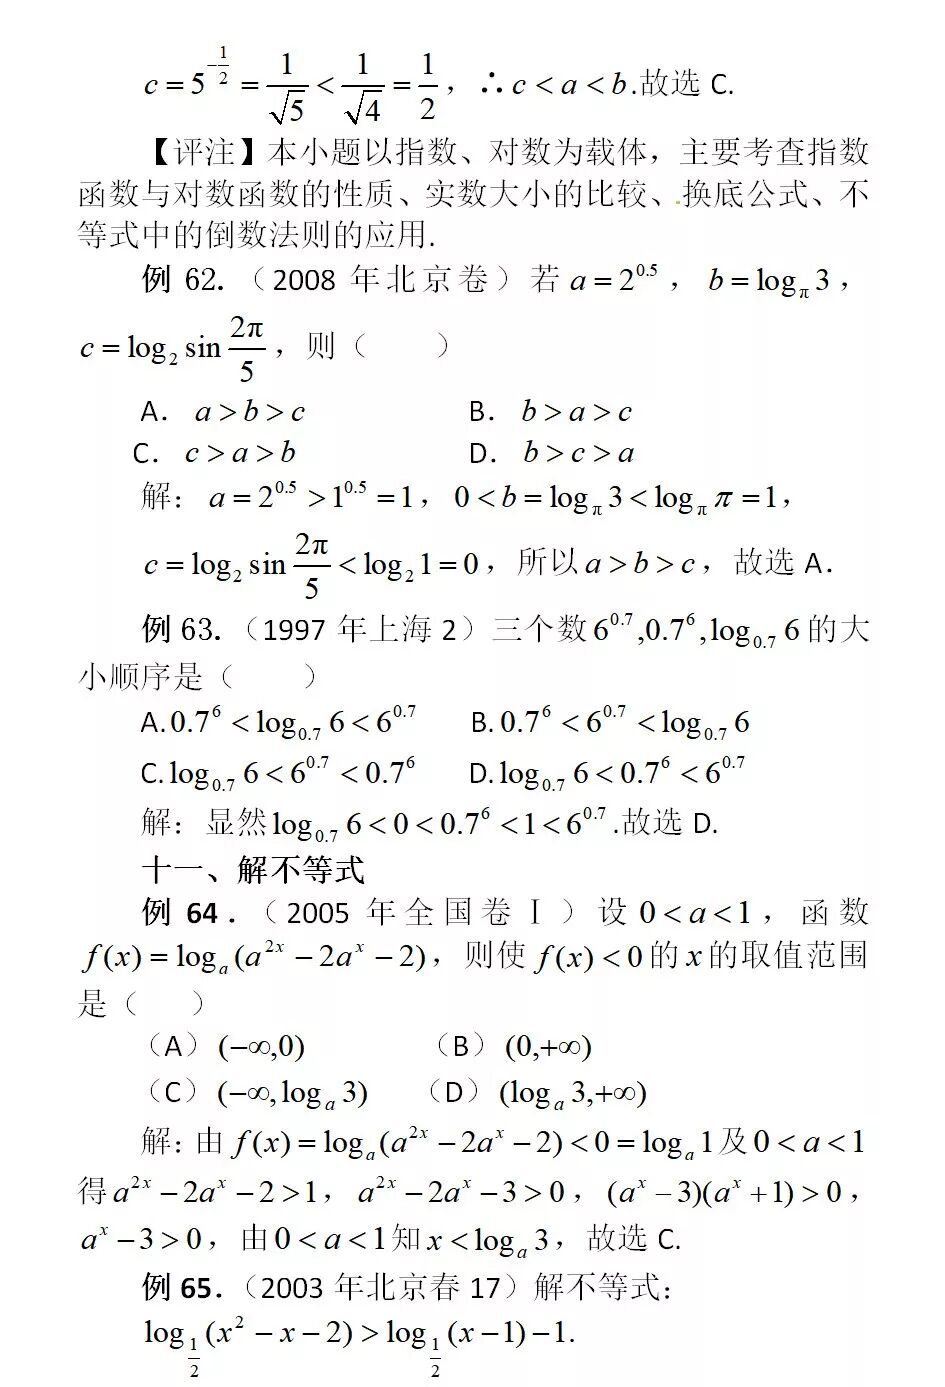 c = 5^{-\frac{1}{2}} = \frac{1}{\sqrt{5}} < \frac{1}{\sqrt{4}} = \frac{1}{2}，∴ c < a < b.故选 C.
【评注】本小题以指数、对数为载体，主要考查指数
函数与对数函数的性质、实数大小的比较、换底公式、不
等式中的倒数法则的应用.
例 62.（2008 年北京卷）若 a = 2^{0.5}，b = log_π 3，
c = log_2 sin \frac{2π}{5}，则（　　）
A．a > b > c　　B．b > a > c
C．c > a > b　　D．b > c > a
解：a = 2^{0.5} > 1^{0.5} = 1，0 < b = log_π 3 < log_π π = 1，
c = log_2 sin \frac{2π}{5} < log_2 1 = 0，所以 a > b > c，故选 A．
例 63.（1997 年上海 2）三个数 6^{0.7},0.7^6,log_{0.7} 6 的大
小顺序是（　　）
A. 0.7^6 < log_{0.7} 6 < 6^{0.7}　　B. 0.7^6 < 6^{0.7} < log_{0.7} 6
C. log_{0.7} 6 < 6^{0.7} < 0.7^6　　D. log_{0.7} 6 < 0.7^6 < 6^{0.7}
解：显然 log_{0.7} 6 < 0 < 0.7^6 < 1 < 6^{0.7}.故选 D.
十一、解不等式
例 64．（2005 年全国卷Ⅰ）设 0 < a < 1，函数
f(x) = log_a(a^{2x} − 2a^x − 2)，则使 f(x) < 0 的 x 的取值范围
是（　　）
（A）(−∞,0)　　（B）(0,+∞)
（C）(−∞,log_a 3)　　（D）(log_a 3,+∞)
解：由 f(x) = log_a(a^{2x} − 2a^x − 2) < 0 = log_a 1 及 0 < a < 1
得 a^{2x} − 2a^x − 2 > 1，a^{2x} − 2a^x − 3 > 0，(a^x − 3)(a^x + 1) > 0，
a^x − 3 > 0，由 0 < a < 1 知 x < log_a 3，故选 C.
例 65．（2003 年北京春 17）解不等式：
log_{\frac{1}{2}}(x^2 − x − 2) > log_{\frac{1}{2}}(x − 1) − 1.